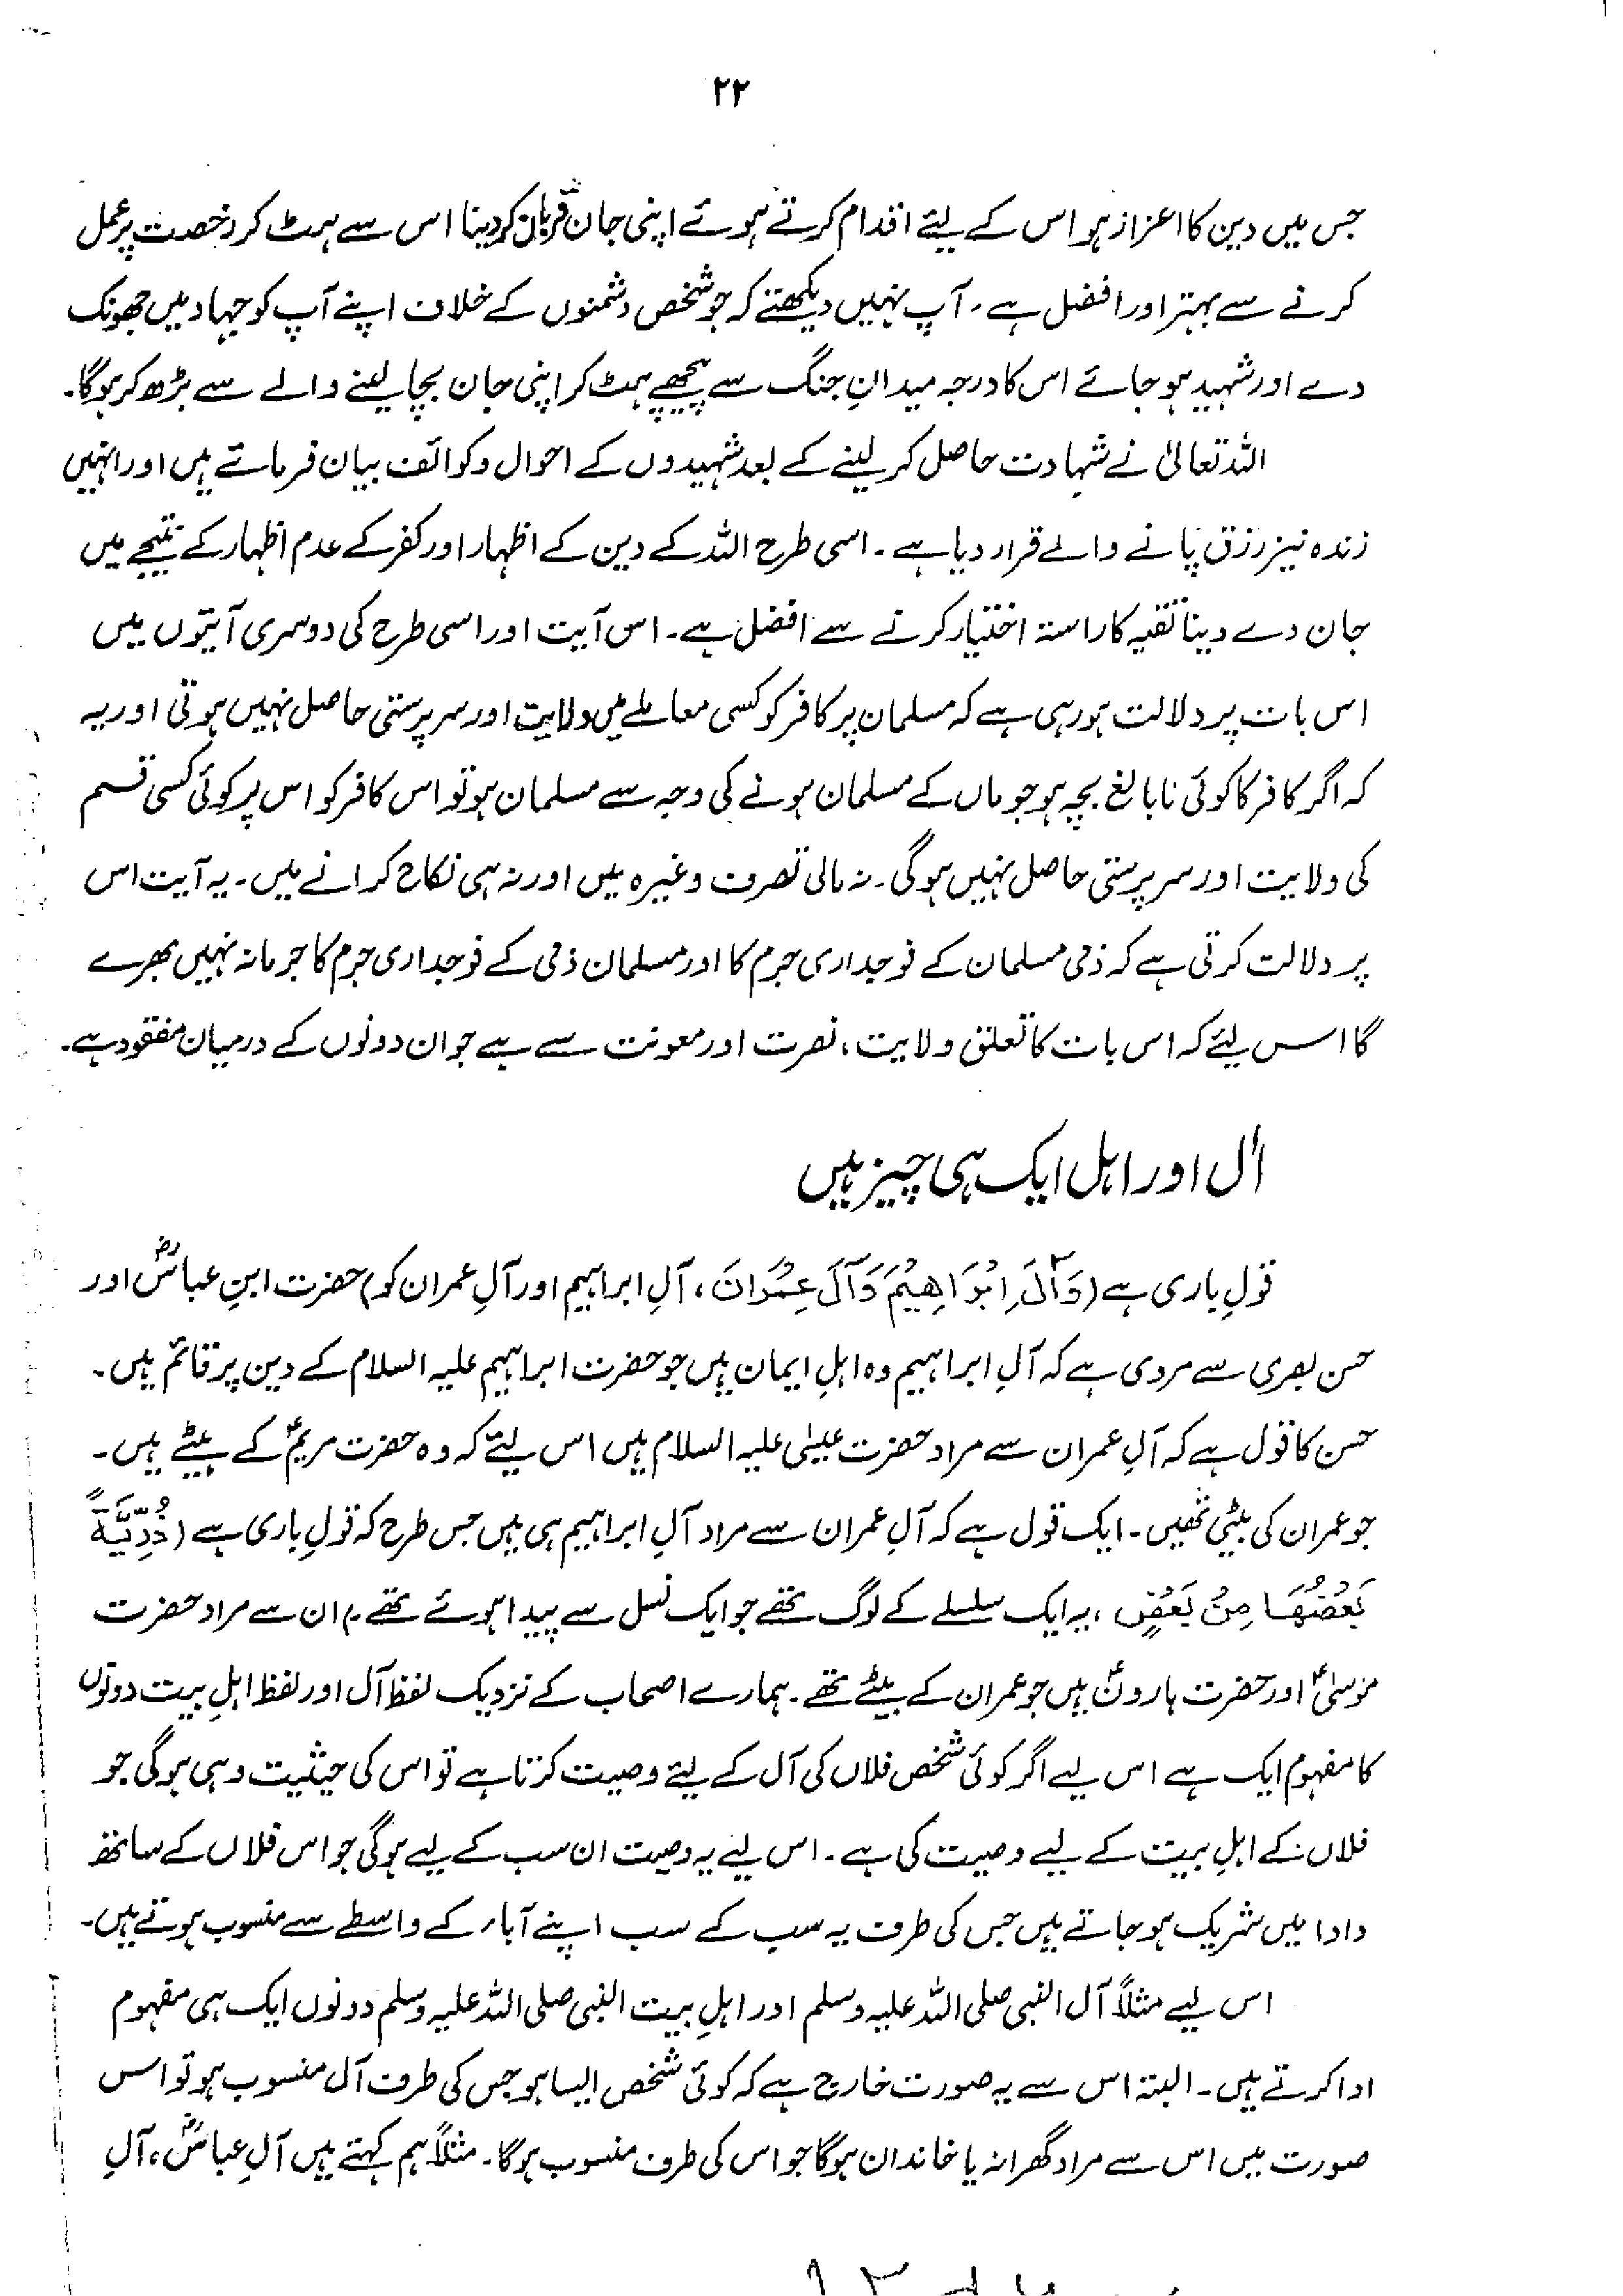 ۲۲
جس میں دین کا اعزاز ہو اس کے لیئے اقدام کرتے ہوئے اپنی جان قربان کر دینا اس سے ہٹ کر رخصت پر عمل
کرنے سے بہتر اور افضل ہے۔ آپ نہیں دیکھتے کہ جو شخص دشمنوں کے خلاف اپنے آپ کو جہاد میں جھونک
دے اور شہید ہو جائے اس کا درجہ میدانِ جنگ سے پیچھے ہٹ کر اپنی جان بچا لینے والے سے بڑھ کر ہوگا۔
اللہ تعالیٰ نے شہادت حاصل کر لینے کے بعد شہیدوں کے احوال و کوائف بیان فرمائے ہیں اور انہیں
زندہ نیز رزق پانے والے قرار دیا ہے۔ اسی طرح اللہ کے دین کے اظہار اور کفر کے عدم اظہار کے نتیجے میں
جان دے دینا تقیہ کا راستہ اختیار کرنے سے افضل ہے۔ اس آیت اور اسی طرح کی دوسری آیتوں میں
اس بات پر دلالت ہو رہی ہے کہ مسلمان پر کافر کو کسی معاملے میں ولایت اور سرپرستی حاصل نہیں ہوتی اور یہ
کہ اگر کافر کا کوئی نابالغ بچہ ہو جو ماں کے مسلمان ہونے کی وجہ سے مسلمان ہو تو اس کافر کو اس پر کوئی کسی قسم
کی ولایت اور سرپرستی حاصل نہیں ہوگی۔ نہ مالی تصرف وغیرہ میں اور نہ ہی نکاح کرانے میں۔ یہ آیت اس
پر دلالت کرتی ہے کہ ذمی مسلمان کے فوجداری جرم کا اور مسلمان ذمی کے فوجداری جرم کا جرمانہ نہیں بھرے
گا اس لیئے کہ اس بات کا تعلق ولایت، نصرت اور معونت سے ہے جو ان دونوں کے درمیان مفقود ہے۔
اٰل اور اہل ایک ہی چیز ہیں
قولِ باری ہے (وَاٰلَ اِبْرَاهِيْمَ وَآلَ عِمْرَانَ، آلِ ابراہیم اور آلِ عمران کو) حضرت ابنِ عباسؓ اور
حسن بصری سے مروی ہے کہ آلِ ابراہیم وہ اہلِ ایمان ہیں جو حضرت ابراہیم علیہ السلام کے دین پر قائم ہیں۔
حسن کا قول ہے کہ آلِ عمران سے مراد حضرت عیسیٰ علیہ السلام ہیں اس لیئے کہ وہ حضرت مریمؑ کے بیٹے ہیں۔
جو عمران کی بیٹی تھیں۔ ایک قول ہے کہ آلِ عمران سے مراد آلِ ابراہیم ہی ہیں جس طرح کہ قولِ باری ہے (ذُرِّيَّةً
بَعْضُهَا مِنْ بَعْضٍ، یہ ایک سلسلے کے لوگ تھے جو ایک نسل سے پیدا ہوئے تھے) ان سے مراد حضرت
موسیٰؑ اور حضرت ہارونؑ ہیں جو عمران کے بیٹے تھے۔ ہمارے اصحاب کے نزدیک لفظ آل اور لفظ اہلِ بیت دونوں
کا مفہوم ایک ہے اس لیے اگر کوئی شخص فلاں کی آل کے لیئے وصیت کرتا ہے تو اس کی حیثیت وہی ہوگی جو
فلاں کے اہلِ بیت کے لیے وصیت کی ہے۔ اس لیے یہ وصیت ان سب کے لیے ہوگی جو اس فلاں کے ساتھ
دادا میں شریک ہو جاتے ہیں جس کی طرف یہ سب کے سب اپنے آباء کے واسطے سے منسوب ہوتے ہیں۔
اس لیے مثلاً آل النبی صلی اللہ علیہ وسلم اور اہلِ بیت النبی صلی اللہ علیہ وسلم دونوں ایک ہی مفہوم
ادا کرتے ہیں۔ البتہ اس سے یہ صورت خارج ہے کہ کوئی شخص ایسا ہو جس کی طرف آل منسوب ہو تو اس
صورت میں اس سے مراد گھرانہ یا خاندان ہوگا جو اس کی طرف منسوب ہوگا۔ مثلاً ہم کہتے ہیں آلِ عباسؓ، آلِ